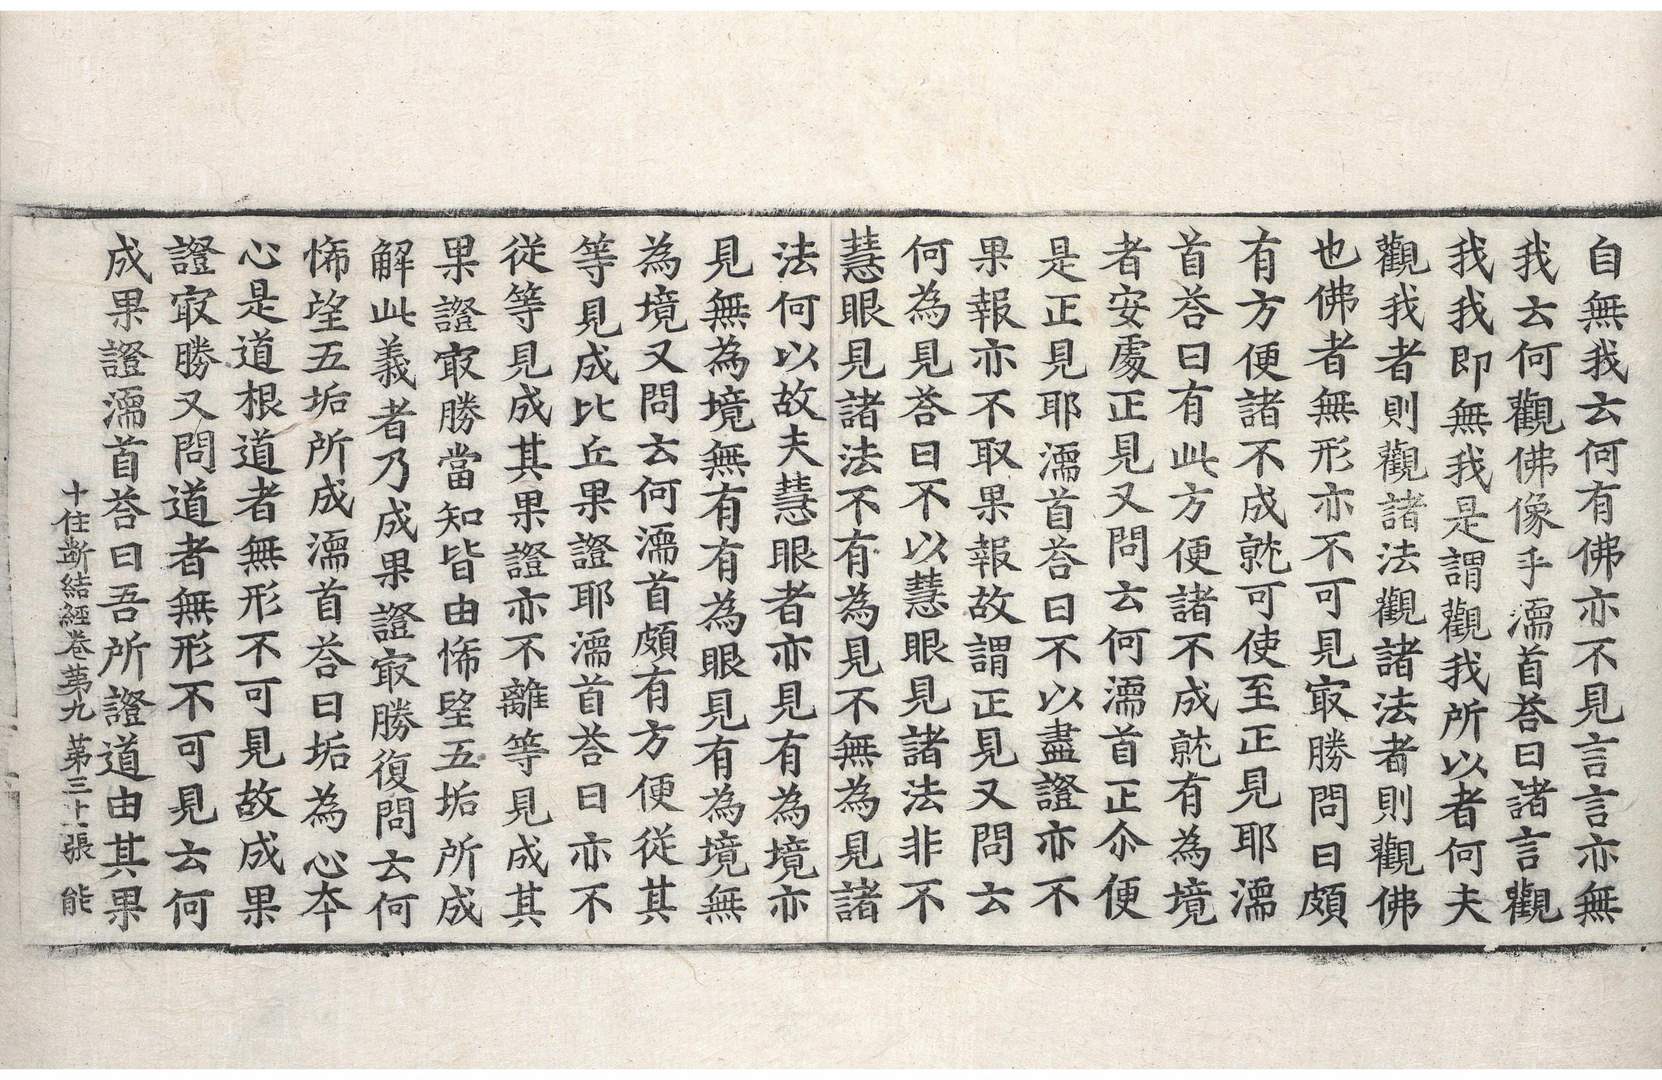 自無我云何有佛亦不見言言亦無
我云何觀佛像乎濡首荅曰諸言觀
我我即無我是謂觀我所以者何夫
觀我者則觀諸法觀諸法者則觀佛
也佛者無形亦不可見冣勝問曰頗
有方便諸不成就可使至正見耶濡
首荅曰有此方便諸不成就有為境
者安處正見又問云何濡首正尒便
是正見耶濡首荅曰不以盡證亦不
果報亦不取果報故謂正見又問云
何為見荅曰不以慧眼見諸法非不
慧眼見諸法不有為見不無為見諸
法何以故夫慧眼者亦見有為境亦
見無為境無有有為眼見有為境無
為境又問云何濡首頗有方便從其
等見成比丘果證耶濡首荅曰亦不
從等見成其果證亦不離等見成其
果證冣勝當知皆由悕望五垢所成
解此義者乃成果證冣勝復問云何
悕望五垢所成濡首荅曰垢為心夲
心是道根道者無形不可見故成果
證冣勝又問道者無形不可見云何
成果證濡首荅曰吾所證道由其果
十住斷結經卷苐九 苐三十張 能